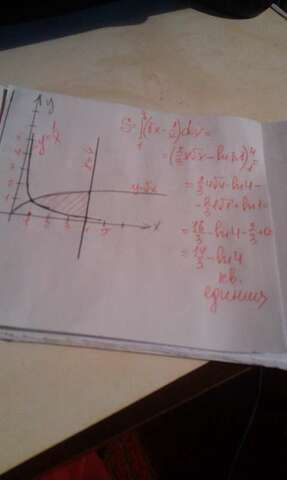 y
y=1/x
x=4
y=√x
x
S=∫₁⁴(√x-1/x)dx=
=(2/3x√x-ln|x|)|₁⁴
=2/3·4√4-ln4-
-2/3·1√1+ln1=
=16/3-ln4-2/3+0
=14/3-ln4
кв.
единиц